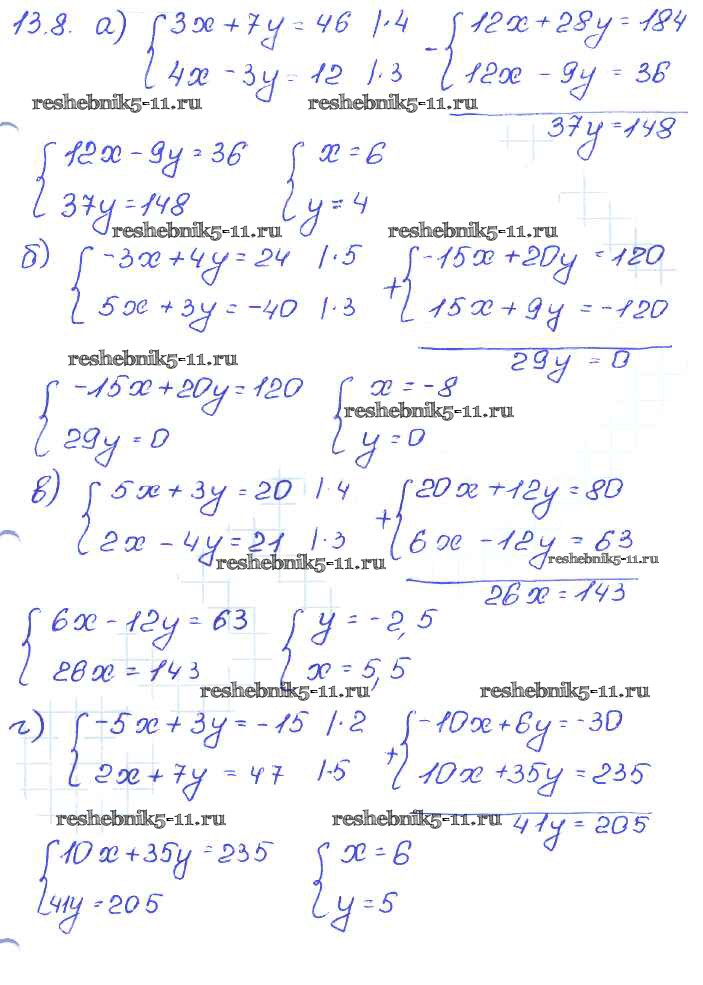 13.8. а) { 3x + 7y = 46 | · 4 - { 12x + 28y = 184
4x - 3y = 12 | · 3 12x - 9y = 36
reshebnik5-11.ru reshebnik5-11.ru
37y = 148
{ 12x - 9y = 36 { x = 6
37y = 148 y = 4
reshebnik5-11.ru reshebnik5-11.ru
б) { -3x + 4y = 24 | · 5 + { -15x + 20y = 120
5x + 3y = -40 | · 3 15x + 9y = -120
reshebnik5-11.ru 29y = 0
{ -15x + 20y = 120 { x = -8
reshebnik5-11.ru
29y = 0 y = 0
в) { 5x + 3y = 20 | · 4 + { 20x + 12y = 80
2x - 4y = 21 | · 3 6x - 12y = 63
reshebnik5-11.ru reshebnik5-11.ru
26x = 143
{ 6x - 12y = 63 { y = -2,5
26x = 143 x = 5,5
reshebnik5-11.ru reshebnik5-11.ru
г) { -5x + 3y = -15 | · 2 + { -10x + 6y = -30
2x + 7y = 47 | · 5 10x + 35y = 235
reshebnik5-11.ru reshebnik5-11.ru 41y = 205
{ 10x + 35y = 235 { x = 6
41y = 205 y = 5